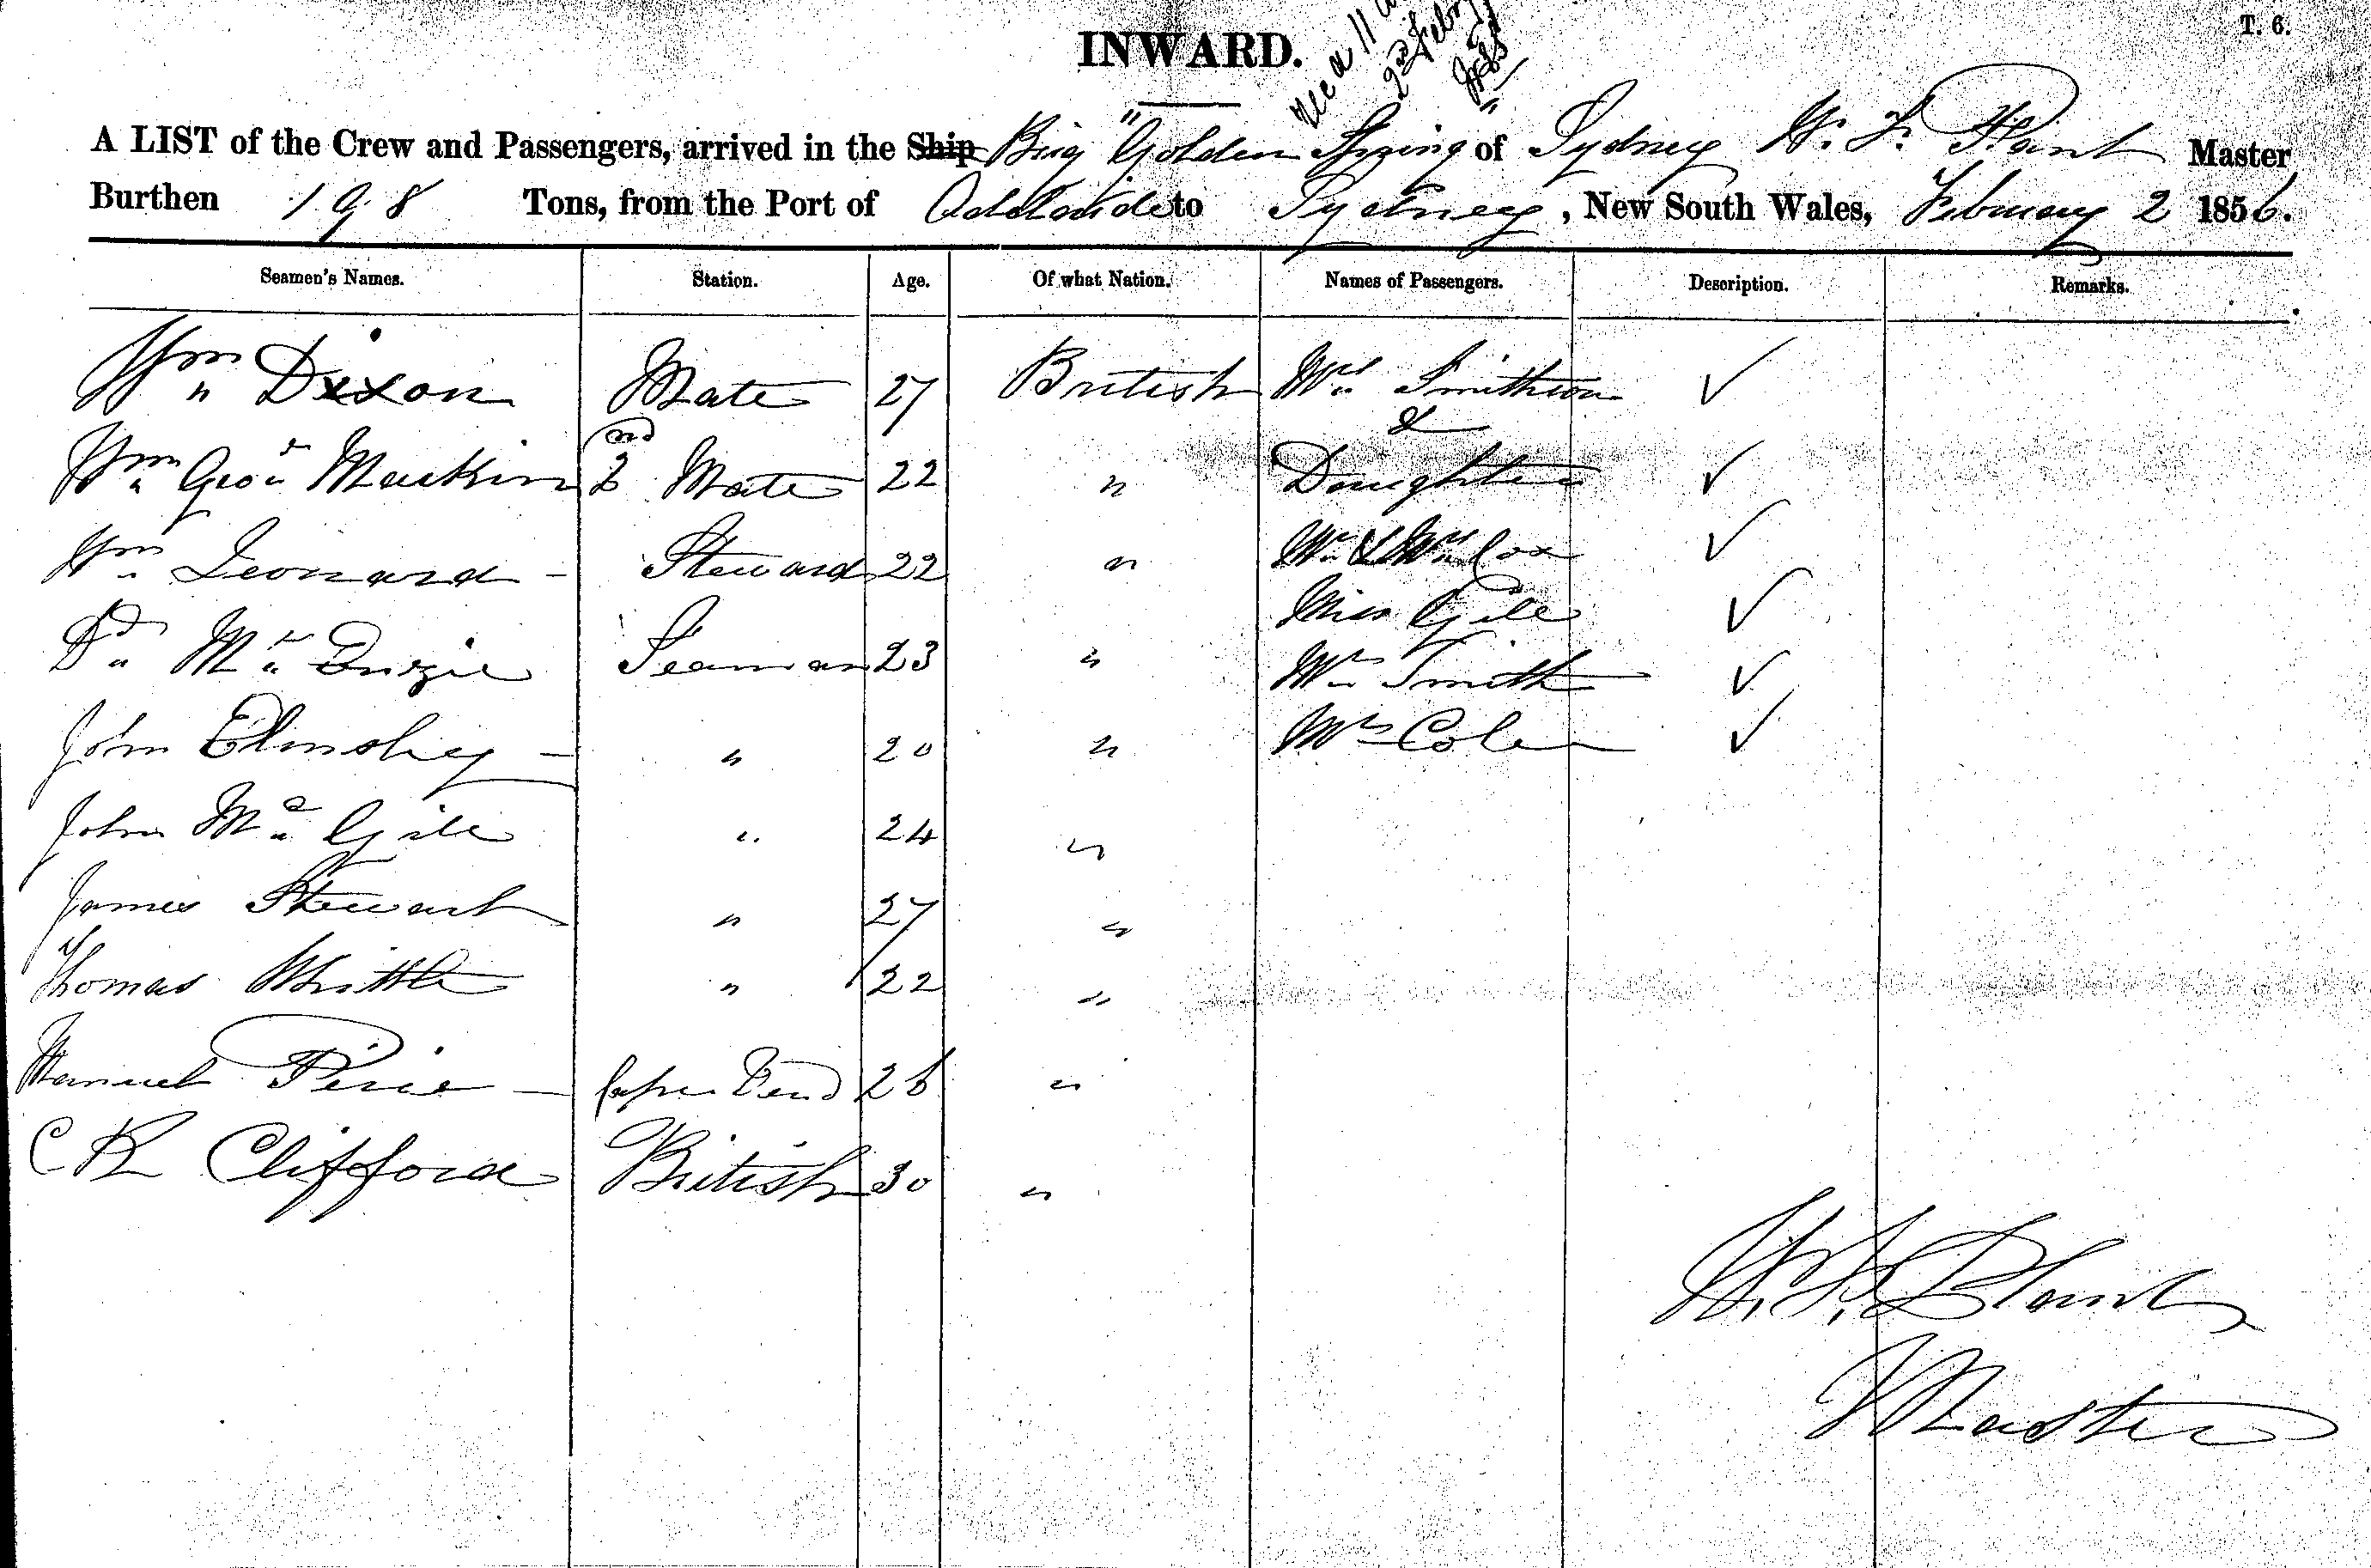 T. 6.
INWARD.
2nd Feby
A LIST of the Crew and Passengers, arrived in the Ship Brig "Golden Spring" of Sydney W. F. Plant Master
Burthen 198 Tons, from the Port of Adelaide to Sydney, New South Wales, February 2 1856.
Seamen's Names. Station. Age. Of what Nation. Names of Passengers. Description. Remarks.
Wm Dixon Mate 27 British Mrs Smithson ✓
&
Wm Geo 2nd Mate 22 " Daughter ✓
Wm Leonard - Steward 22 " Mr & Mrs Cox ✓
Miss Gill ✓
Dd Mc Seaman 23 " Mr Smith ✓
John Elmsley - " 20 " Mrs Cole ✓
John Mc Gill " 24 "
James Stewart " 27 "
Thomas Whittle " 22 "
Manuel - 26 "
C R Clifford British 30 "
W. F. Plant
Master